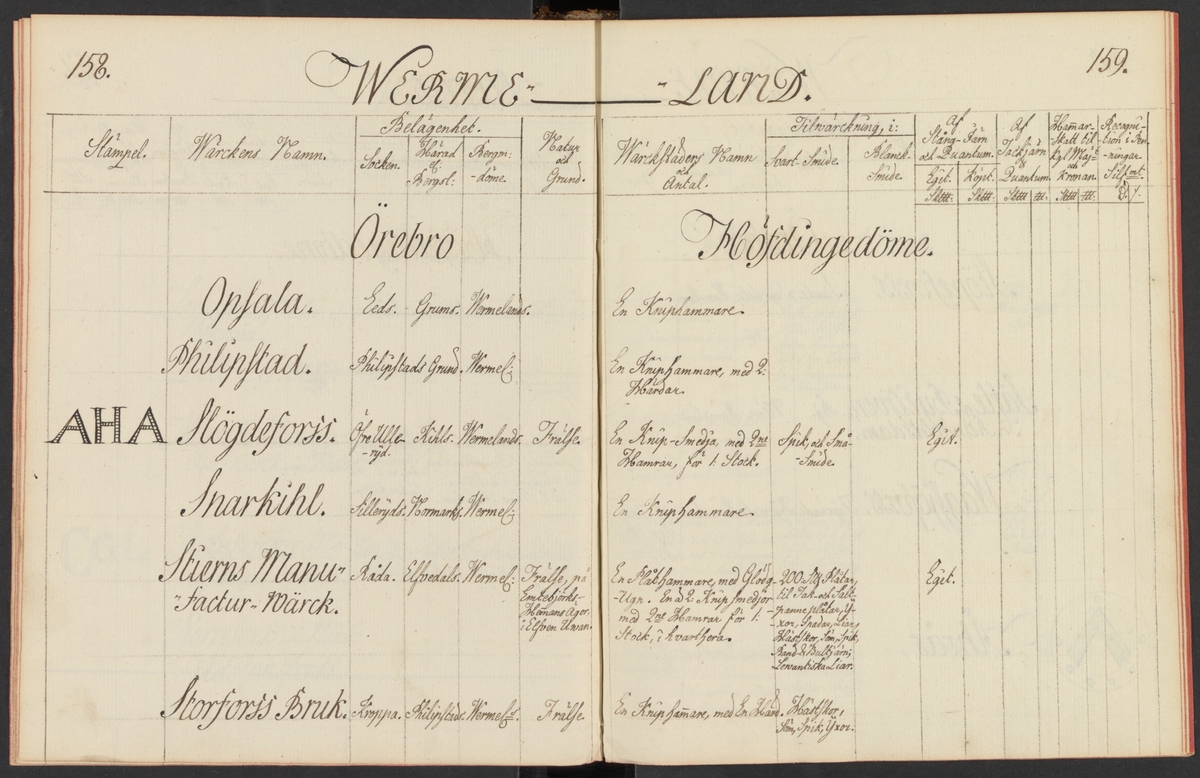 158.
WERME-
-LAND.
159.
Stämpel.
Wärckens Namn.
Belägenhet.
Socken.
Härad
&
Bergsl:
Bergm:
döme.
Natur
och
Grund.
Wärckstäders Namn
och
Antal.
Tilwärckning, i:
Svart-Smide.
Blanck-
Smide.
Af
Stång-Järn
och Quantum.
Egit.
Köpt.
Sk℔:
Sk℔:
Af
Tackjärn
&
Quantum.
Sk℔ ℔:
Hamar-
Skatt til
Kgl Maj:t
och
Kronan.
Sk℔ ℔:
Recogni-
tion i Pen-
ningar.
Silf:mt:
Örebro
Höfdingedöme.
Opsala.
Eeds.
Grums.
Wermelands.
En Kniphammare.
Philipstad.
Philipstads Grund.
Wermel:
En Kniphammare, med 2:
Härdar.
AHA
Slögdeforss.
Öfre Ulle-
-ryd.
Kihls.
Wermelands.
Frälse.
En Knip-Smedja, med 2:ne
Hamrar, för 1: Stock.
Spik, och Små-
-Smide.
Egit.
Snarkihl.
Silleryds.
Normarks.
Wermel:
En Kniphammare.
Stierns Manu-
-factur-Wärck.
Råda.
Elfvedals.
Wermel:
Frälse, på
Emtebjörks-
Hemans Ägor.
i Elfven Uwan.
En Plåthammare, med Glödg-
-Ugn. En à 2: Knipsmedjor
med 2:ne Hamrar för 1:
Stock, i hvarthera.
200 Sk℔ Plåtar,
til Tak- och Salt-
-panneplåtar, Y-
-xor, Spadar, Liar,
Hästskor, Söm, Spik,
Band & Bultjärn,
Lewantiska Liar.
Egit.
Storforss Bruk.
Kroppa.
Philipstads.
Wermel:s
Frälse.
En Kniphamare, med En Härd.
Hästskor,
Söm, Spik, Yxor.